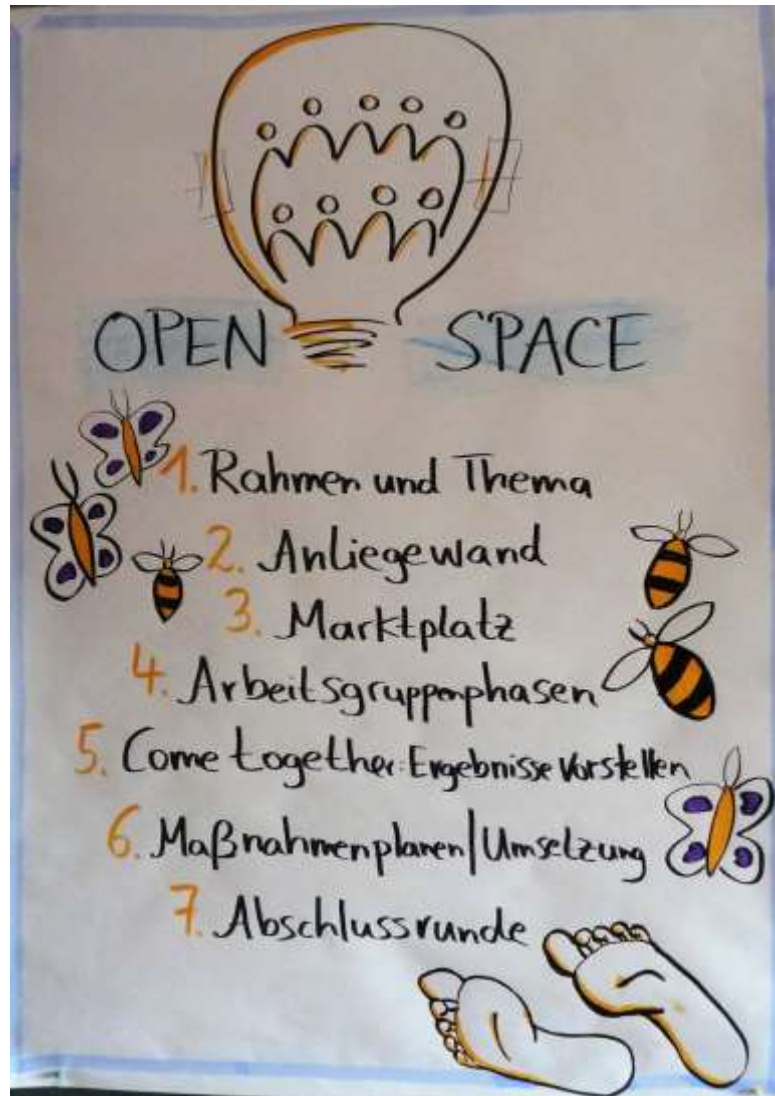 OPEN SPACE
1. Rahmen und Thema
2. Anliegewand
3. Marktplatz
4. Arbeitsgruppenphasen
5. Come together: Ergebnisse Vorstellen
6. Maßnahmenplanen/Umsetzung
7. Abschlussrunde